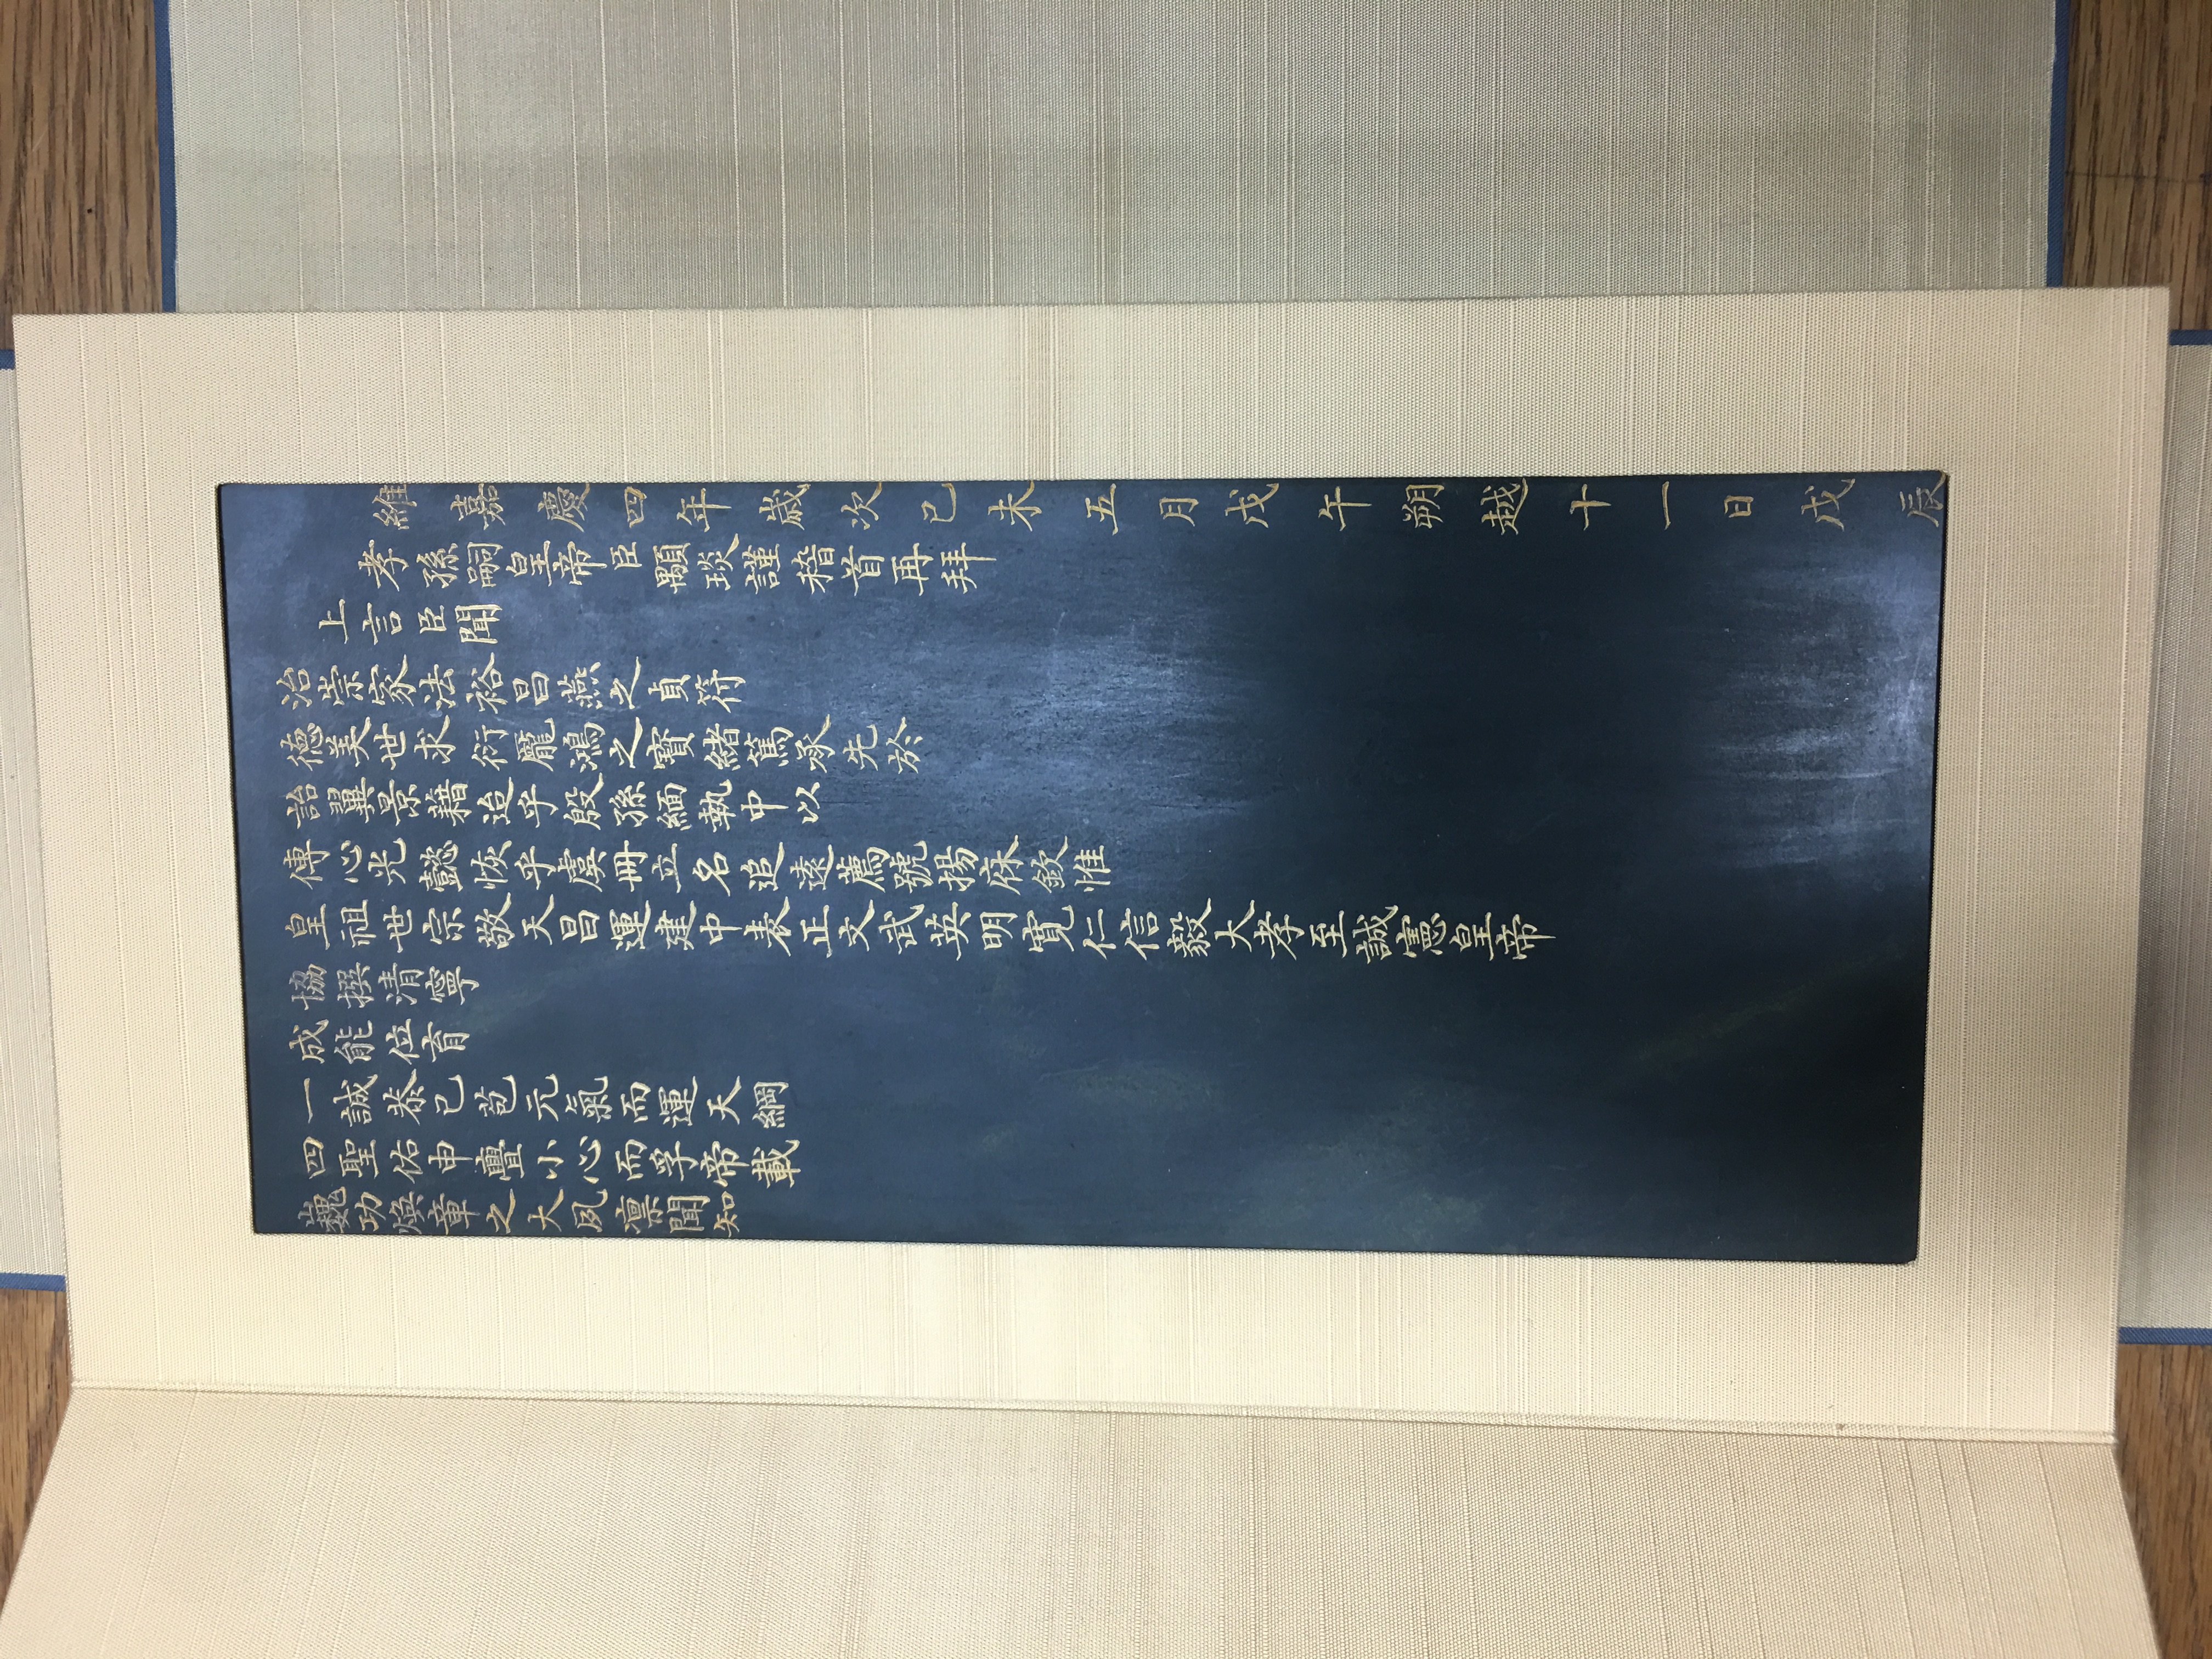 維嘉慶四年歲次己未五月戊午朔越十一日戊辰
孝孫嗣皇帝臣顒琰謹稽首再拜
上言臣聞
治崇家法裕昌燕之貞符
德美世求衍龐鴻之寶緒篤承先於
詒翼景藉迨乎殷孫緬執中以
傳心光懿恢乎虞冊立名追遠薦號揚庥欽惟
皇祖世宗敬天昌運建中表正文武英明寬仁信毅大孝至誠憲皇帝
協撰清寧
成能位育
一誠恭己苞元氣而運天綱
四聖佑申亹小心而孚帝載
巍功煥章之大夙凛聞知